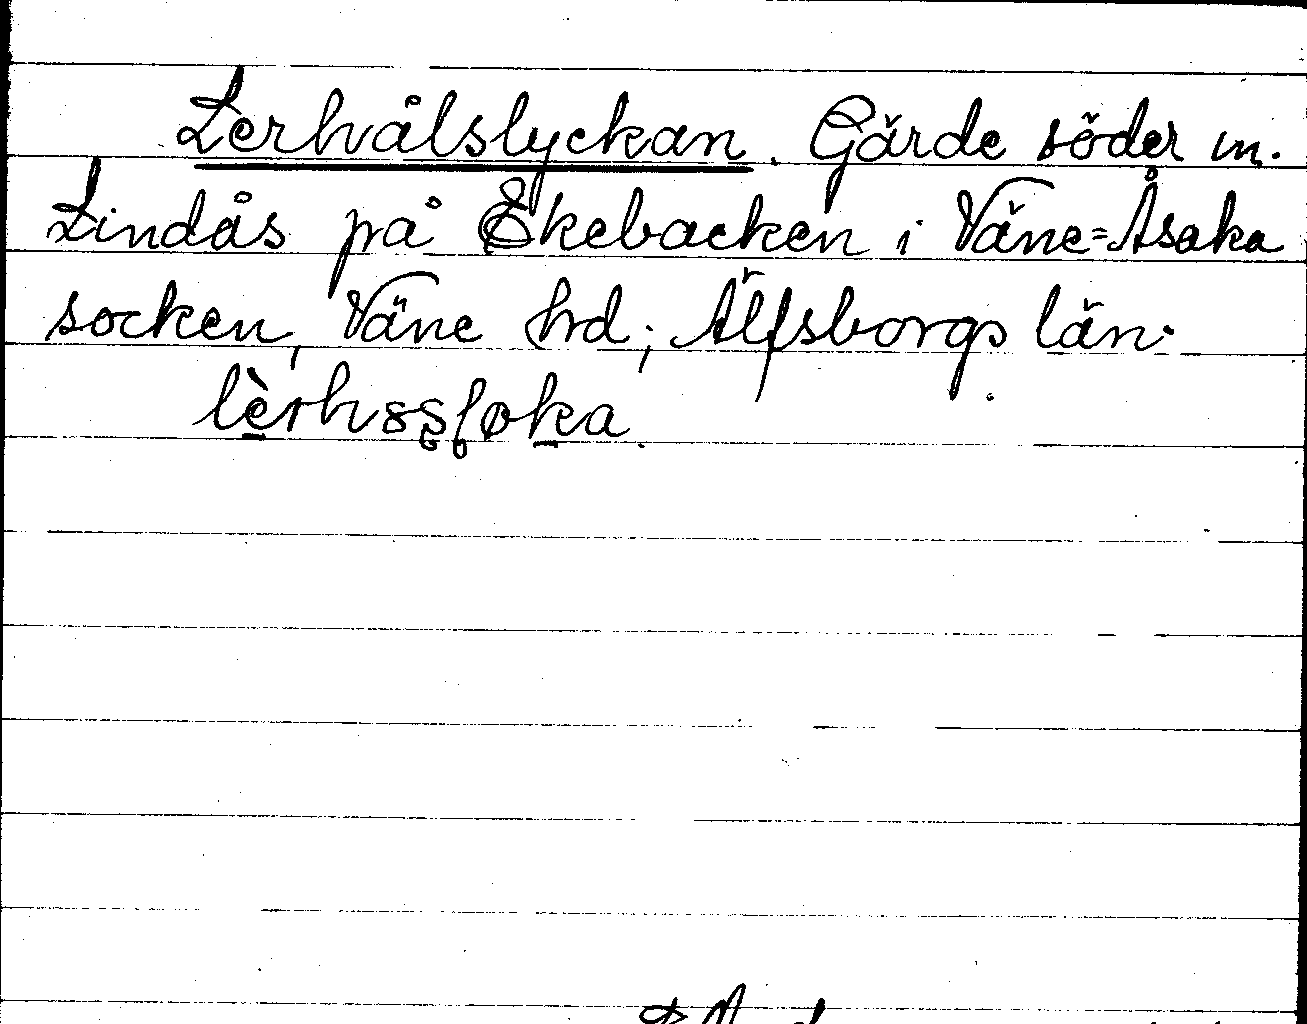 Lerhålslyckan. Gärde söder m.
Lindås på Ekebacken i Väne-Åsaka
socken, Väne hd; Älfsborgs län.